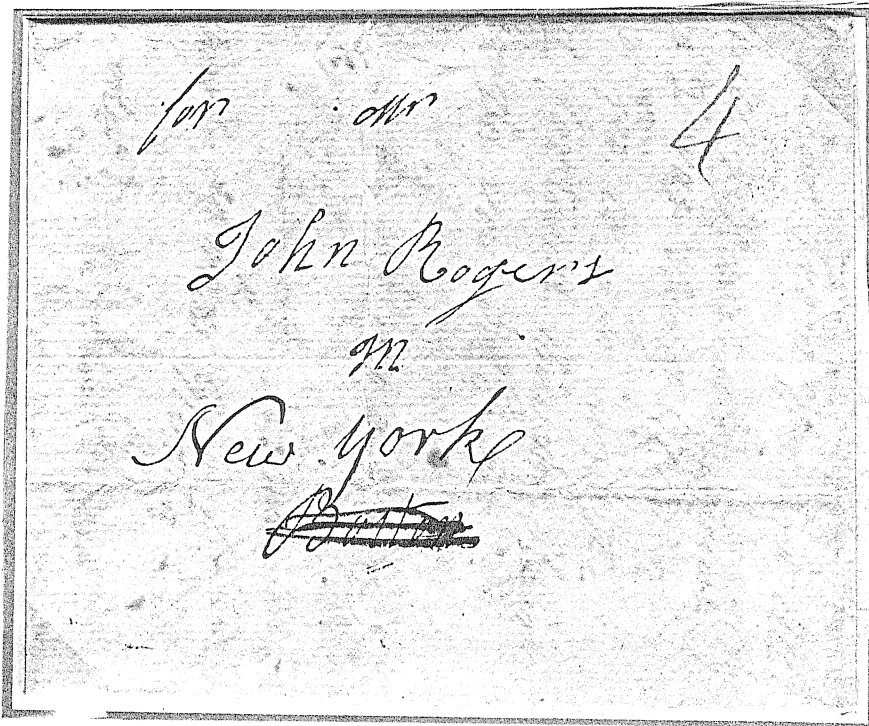 for Mr 4
John Rogers
in
New York
Boston